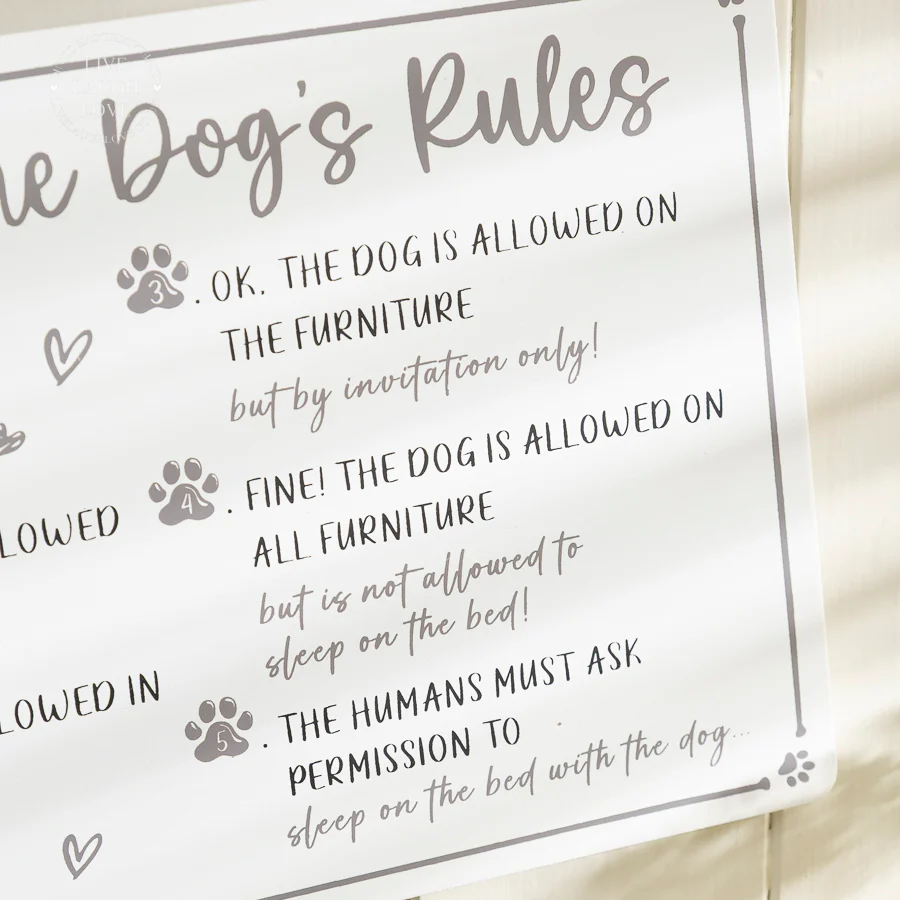 LIVE
LOVE
Dog's Rules
3. OK. THE DOG IS ALLOWED ON
THE FURNITURE
but by invitation only!
LOWED
4. FINE! THE DOG IS ALLOWED ON
ALL FURNITURE
but is not allowed to
sleep on the bed!
LOWED IN
5. THE HUMANS MUST ASK
PERMISSION TO
sleep on the bed with the dog...